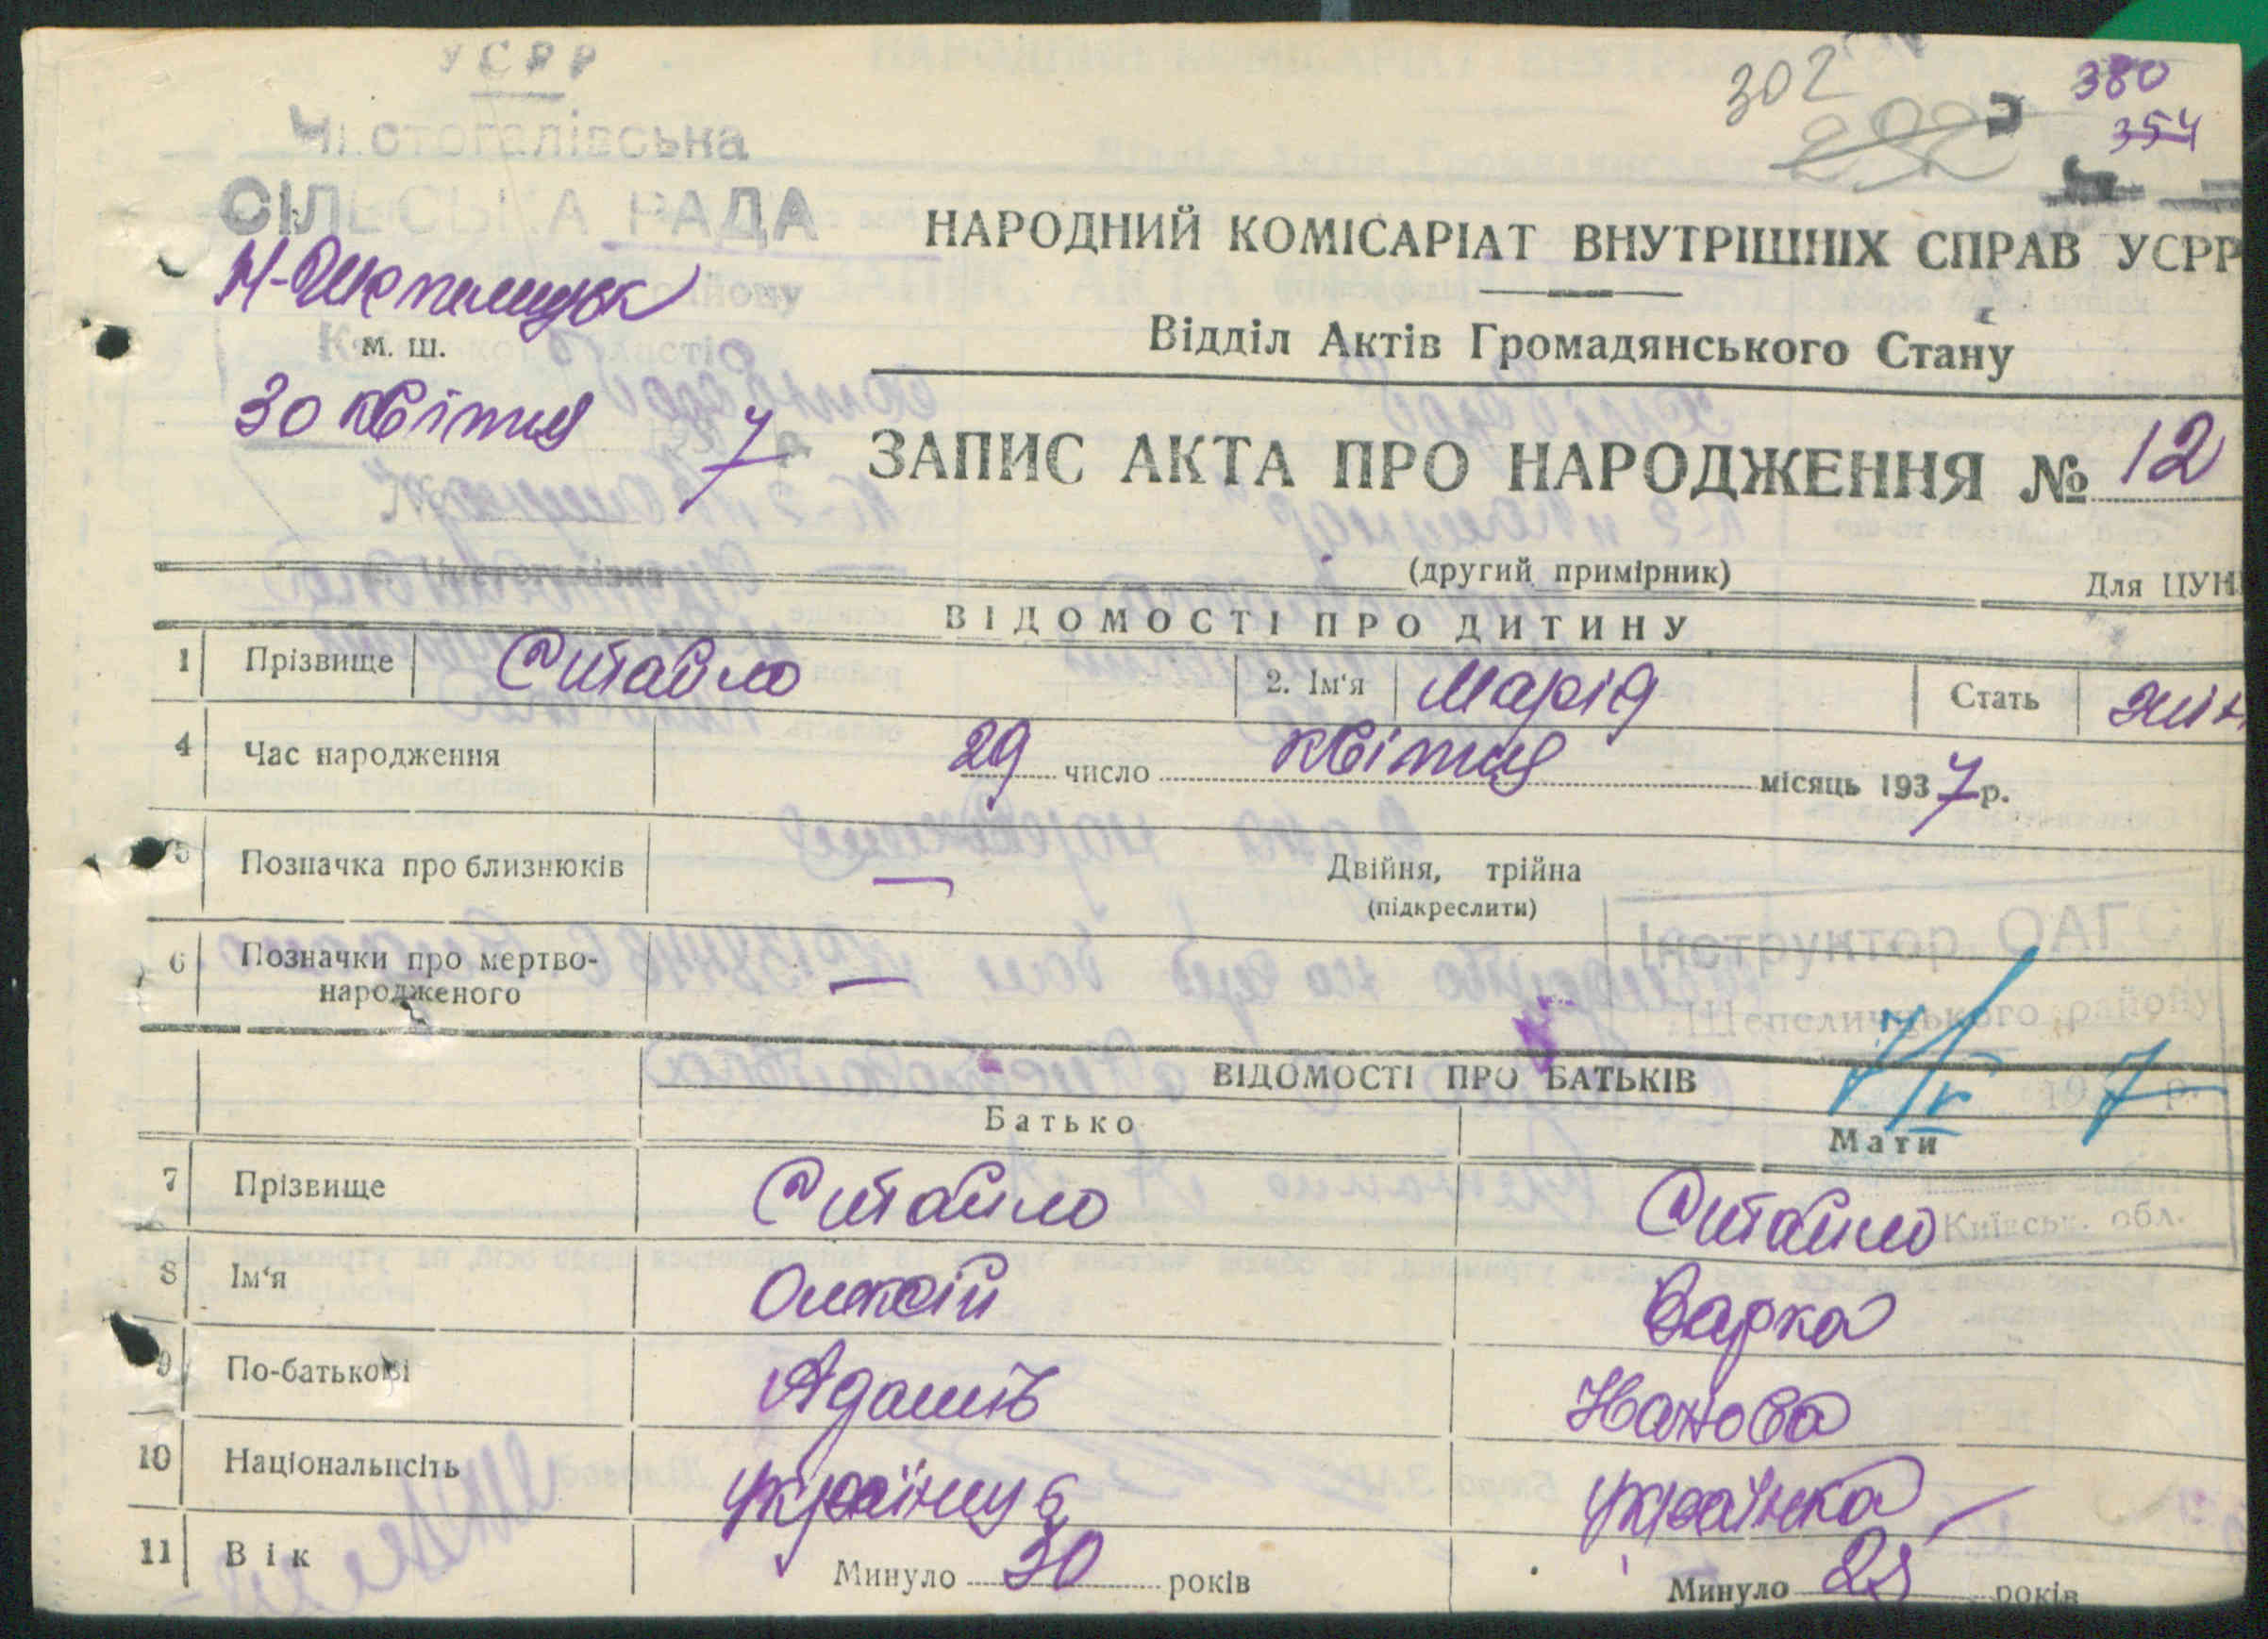 УСРР
Чистогалівська
СІЛЬСЬКА РАДА
302
380
354
292
району
М. Ш.
30 квітня 1937 р.
НАРОДНИЙ КОМІСАРІАТ ВНУТРІШНІХ СПРАВ УСРР
Відділ Актів Громадянського Стану
ЗАПИС АКТА ПРО НАРОДЖЕННЯ № 12
(другий примірник)
Для ЦУН
ВІДОМОСТІ ПРО ДИТИНУ
1 Прізвище Ситайло 2. Ім'я Марія Стать жін
4 Час народження 29 число квітня місяць 1937 р.
5 Позначка про близнюків — Двійня, трійня
(підкреслити)
Інструктор ОАГС
6 Позначки про мертво-
народженого —
Шепелицького району
7/V 1937 р.
ВІДОМОСТІ ПРО БАТЬКІВ
Батько Мати
7 Прізвище Ситайло Ситайло
Київськ. обл.
8 Ім'я Олексій Варка
9 По-батькові Адамів Іванова
10 Національність українець українка
11 Вік Минуло 30 років Минуло 25 років